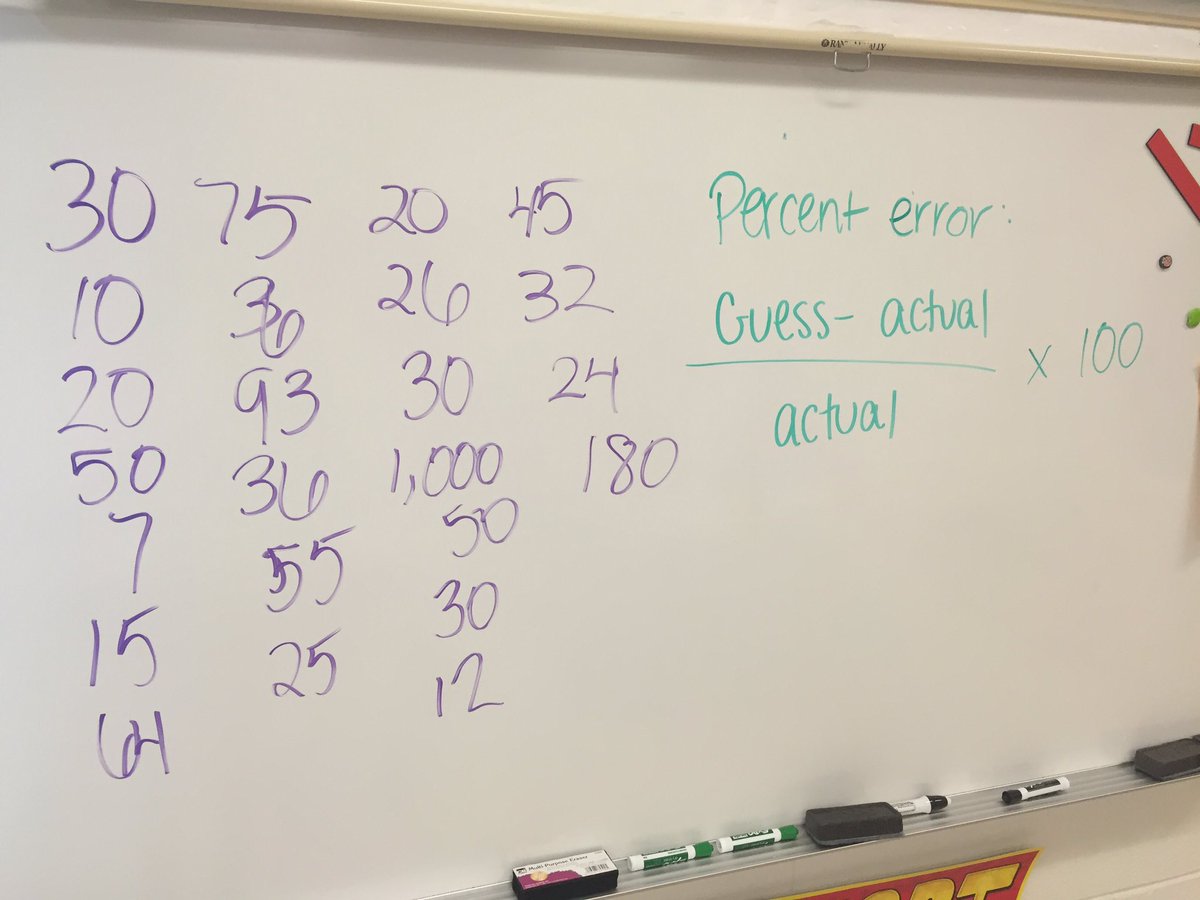 30 75 20 45
10 26 32
20 93 30 24
50 36 1,000 180
7 55 50
15 25 30
64 12
Percent error:
Guess- actual
actual
x 100
Multi-Purpose Eraser